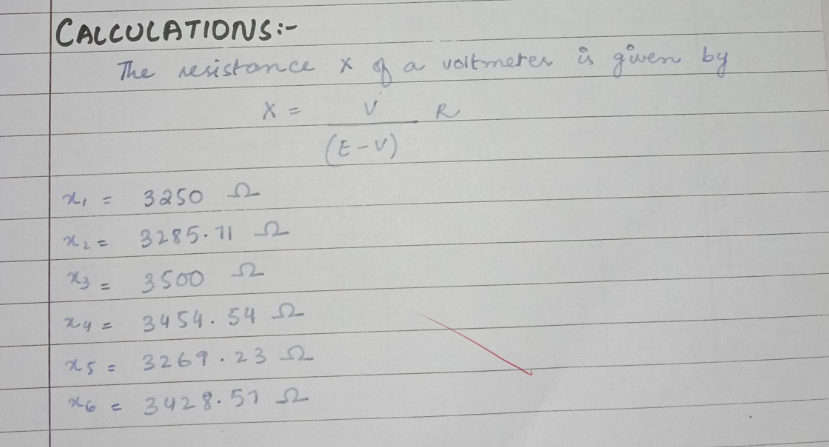 CALCULATIONS:-
The resistance X of a voltmeter is given by
X = V R
(E-V)
x₁ = 3250 Ω
x₂ = 3285.71 Ω
x₃ = 3500 Ω
x₄ = 3454.54 Ω
x₅ = 3269.23 Ω
x₆ = 3428.57 Ω